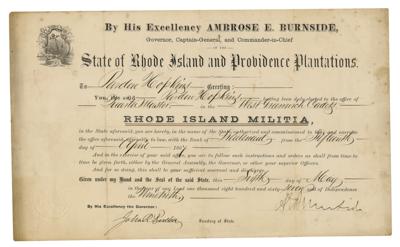 By His Excellency AMBROSE E. BURNSIDE,
Governor, Captain-General, and Commander-in-Chief
OF THE
State of Rhode Island and Providence Plantations.
To Pardon Hopkins Greeting:
You, the said Pardon Hopkins having been duly elected to the office of
Quarter Master in the West Greenwich Cadets
RHODE ISLAND MILITIA,
in the State aforesaid, you are hereby, in the name of the State, authorized and commissioned to have and exercise
the office aforesaid, to have the Rank of Lieutenant from the Fifteenth
day of April 1867
And in the exercise of your said office, you are to follow such instructions and orders as shall from time to
time be given forth, either by the General Assembly, the Governor, or other your superior Officers.
And for so doing, this shall be your sufficient warrant and discharge.
Given under my Hand and the Seal of the said State, this day of May
in the year of our Lord one thousand eight hundred and sixty seven of Independence
the Ninety
By His Excellency the Governor:
Secretary of State.